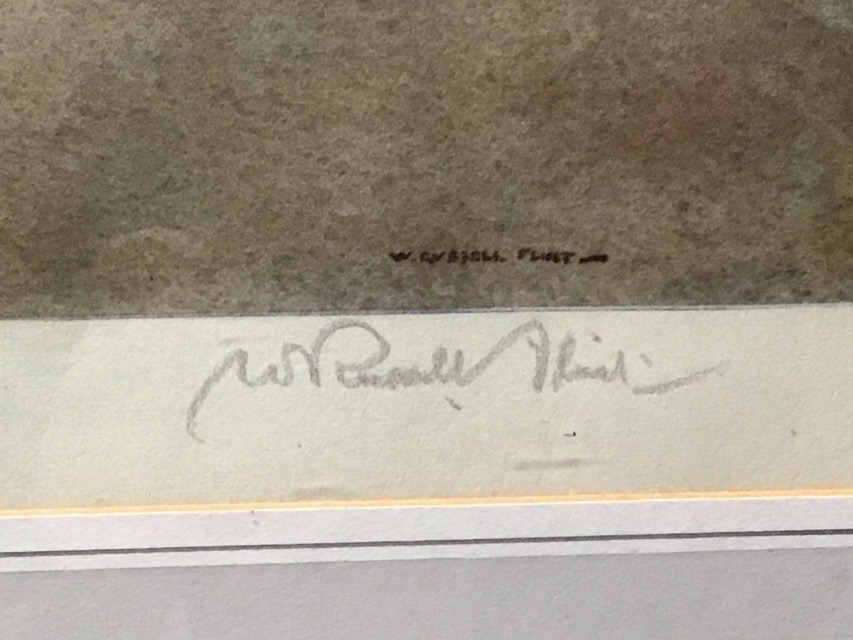 W. RUSSELL FLINT—
W Russell Flint